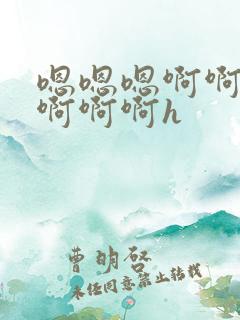 嗯嗯嗯啊啊
啊啊啊h
曹明铭
未经同意禁止转载